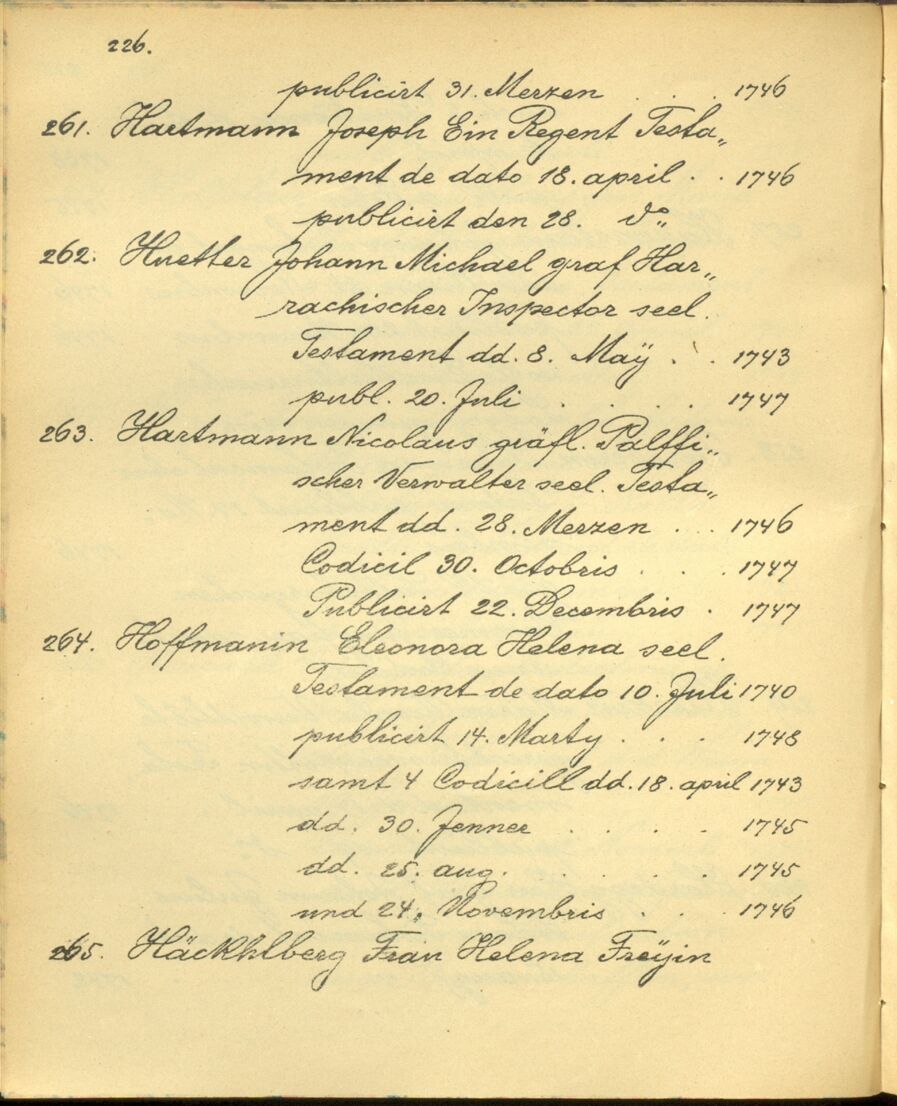 226.
publicirt 31. Merzen . . . 1746
261. Hartmann Joseph Ein Regent Testa„
ment de dato 18. april . . 1746
publicirt den 28. do
262. Huetter Johann Michael graf Har„
rachischer Inspector seel.
Testament dd. 8. Maÿ . . 1743
publ. 20. Juli . . . . 1747
263. Hartmann Nicolaus gräfl. Palffi„
scher Verwalter seel. Testa„
ment dd. 28. Merzen . . . 1746
Codicil 30. Octobris . . . 1747
Publicirt 22. Decembris . 1747
264. Hoffmanin Eleonora Helena seel.
Testament de dato 10. Juli 1740
publicirt 14. Marty . . . 1748
samt 4 Codicill dd. 18. april 1743
dd. 30. Jenner . . . . 1745
dd. 25. aug. . . . . 1745
und 24. Novembris . . . 1746
265. Häckhlberg Frau Helena Freÿin